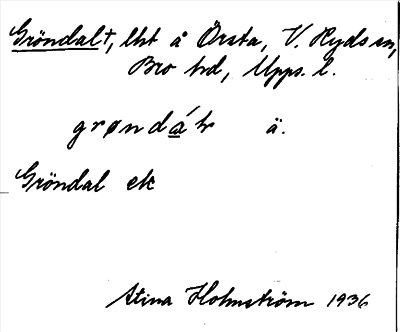 Gröndal†, lht å Örsta, V. Ryds sn,
Bro hd, Upps. l.
grøndá̲ɫ ä.
Gröndal ek
Stina Holmström 1936